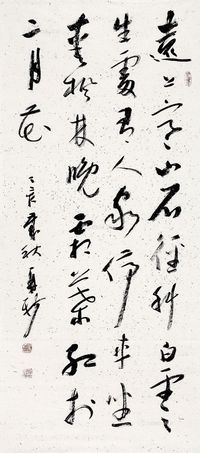 遠上寒山石徑斜白雲
生處有人家停車坐
愛楓林晚霜葉紅於
二月花
歲秋